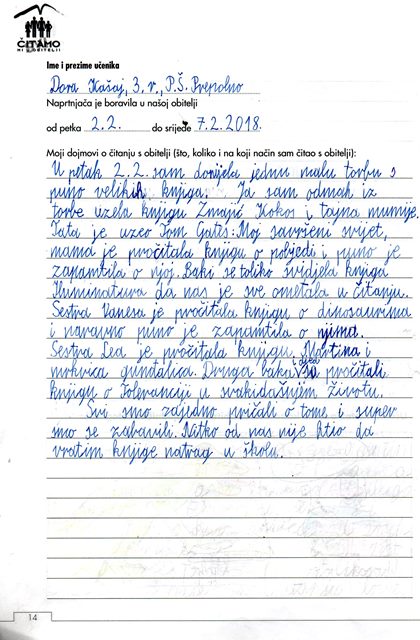 ČITAMO
MI U OBITELJI
Ime i prezime učenika
Dora Kašaj, 3. r., P.Š. Prepolno
Naprtnjača je boravila u našoj obitelji
od petka 2.2. do srijede 7.2.2018.
Moji dojmovi o čitanju s obitelji (što, koliko i na koji način sam čitao s obitelji):
U petak 2.2. sam donijela jednu malu torbu s
puno velikih knjiga. Ja sam odmah iz
torbe uzela knjigu Zmajić Kokos i tajna mumije.
Tata je uzeo Tom Gates: Moj savršeni svijet,
mama je pročitala knjigu o pobjedi i puno je
zapamtila o njoj. Baki se toliko svidjela knjiga
Iluminatura da nas je sve ometala u čitanju.
Sestra Vanesa je pročitala knjigu o dinosaurima
i naravno puno je zapamtila o njima.
Sestra Lea je pročitala knjigu, Martina i
mokrica gundalica. Druga baka i djed su pročitali
knjigu o Toleranciji u svakidašnjem životu.
Svi smo zajedno pričali o tome i super
smo se zabavili. Nitko od nas nije htio da
vratim knjige natrag u školu.
14